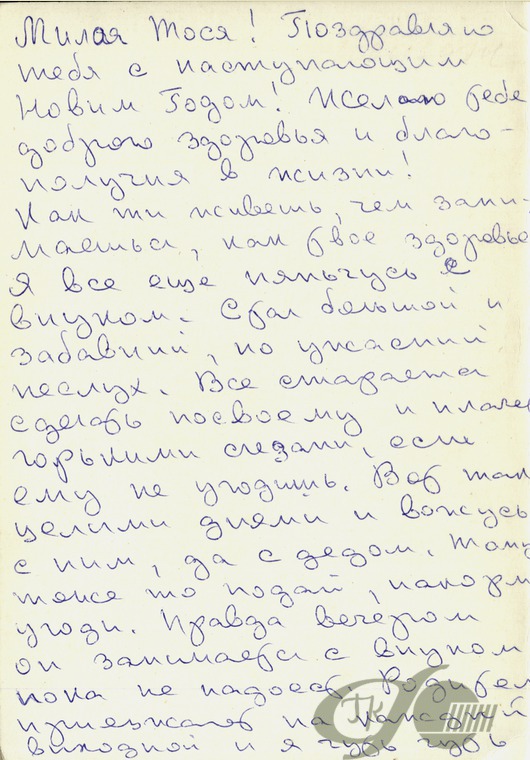 Милая Тося! Поздравляю
тебя с наступающим
Новим Годом! Желаю тебе
доброго здоровья и благо-
получия в жизни!
Как ти живешь, чем зани-
маешься, как твое здоровье
Я все еще няньчусь с
внуком. Стал большой и
забавний, но ужасний
неслух. Все старается
сделать посвоему и плачет
горькими слезами, если
ему не угодишь. Вот так
целими днями и вожусь
с ним, да с дедом. Тому
тоже то подай, накорм
угоди. Правда вечером
он занимается с внуком
пока не надоест. Родител
приезжают на каждий
виходной и я чуть чуть
ГК